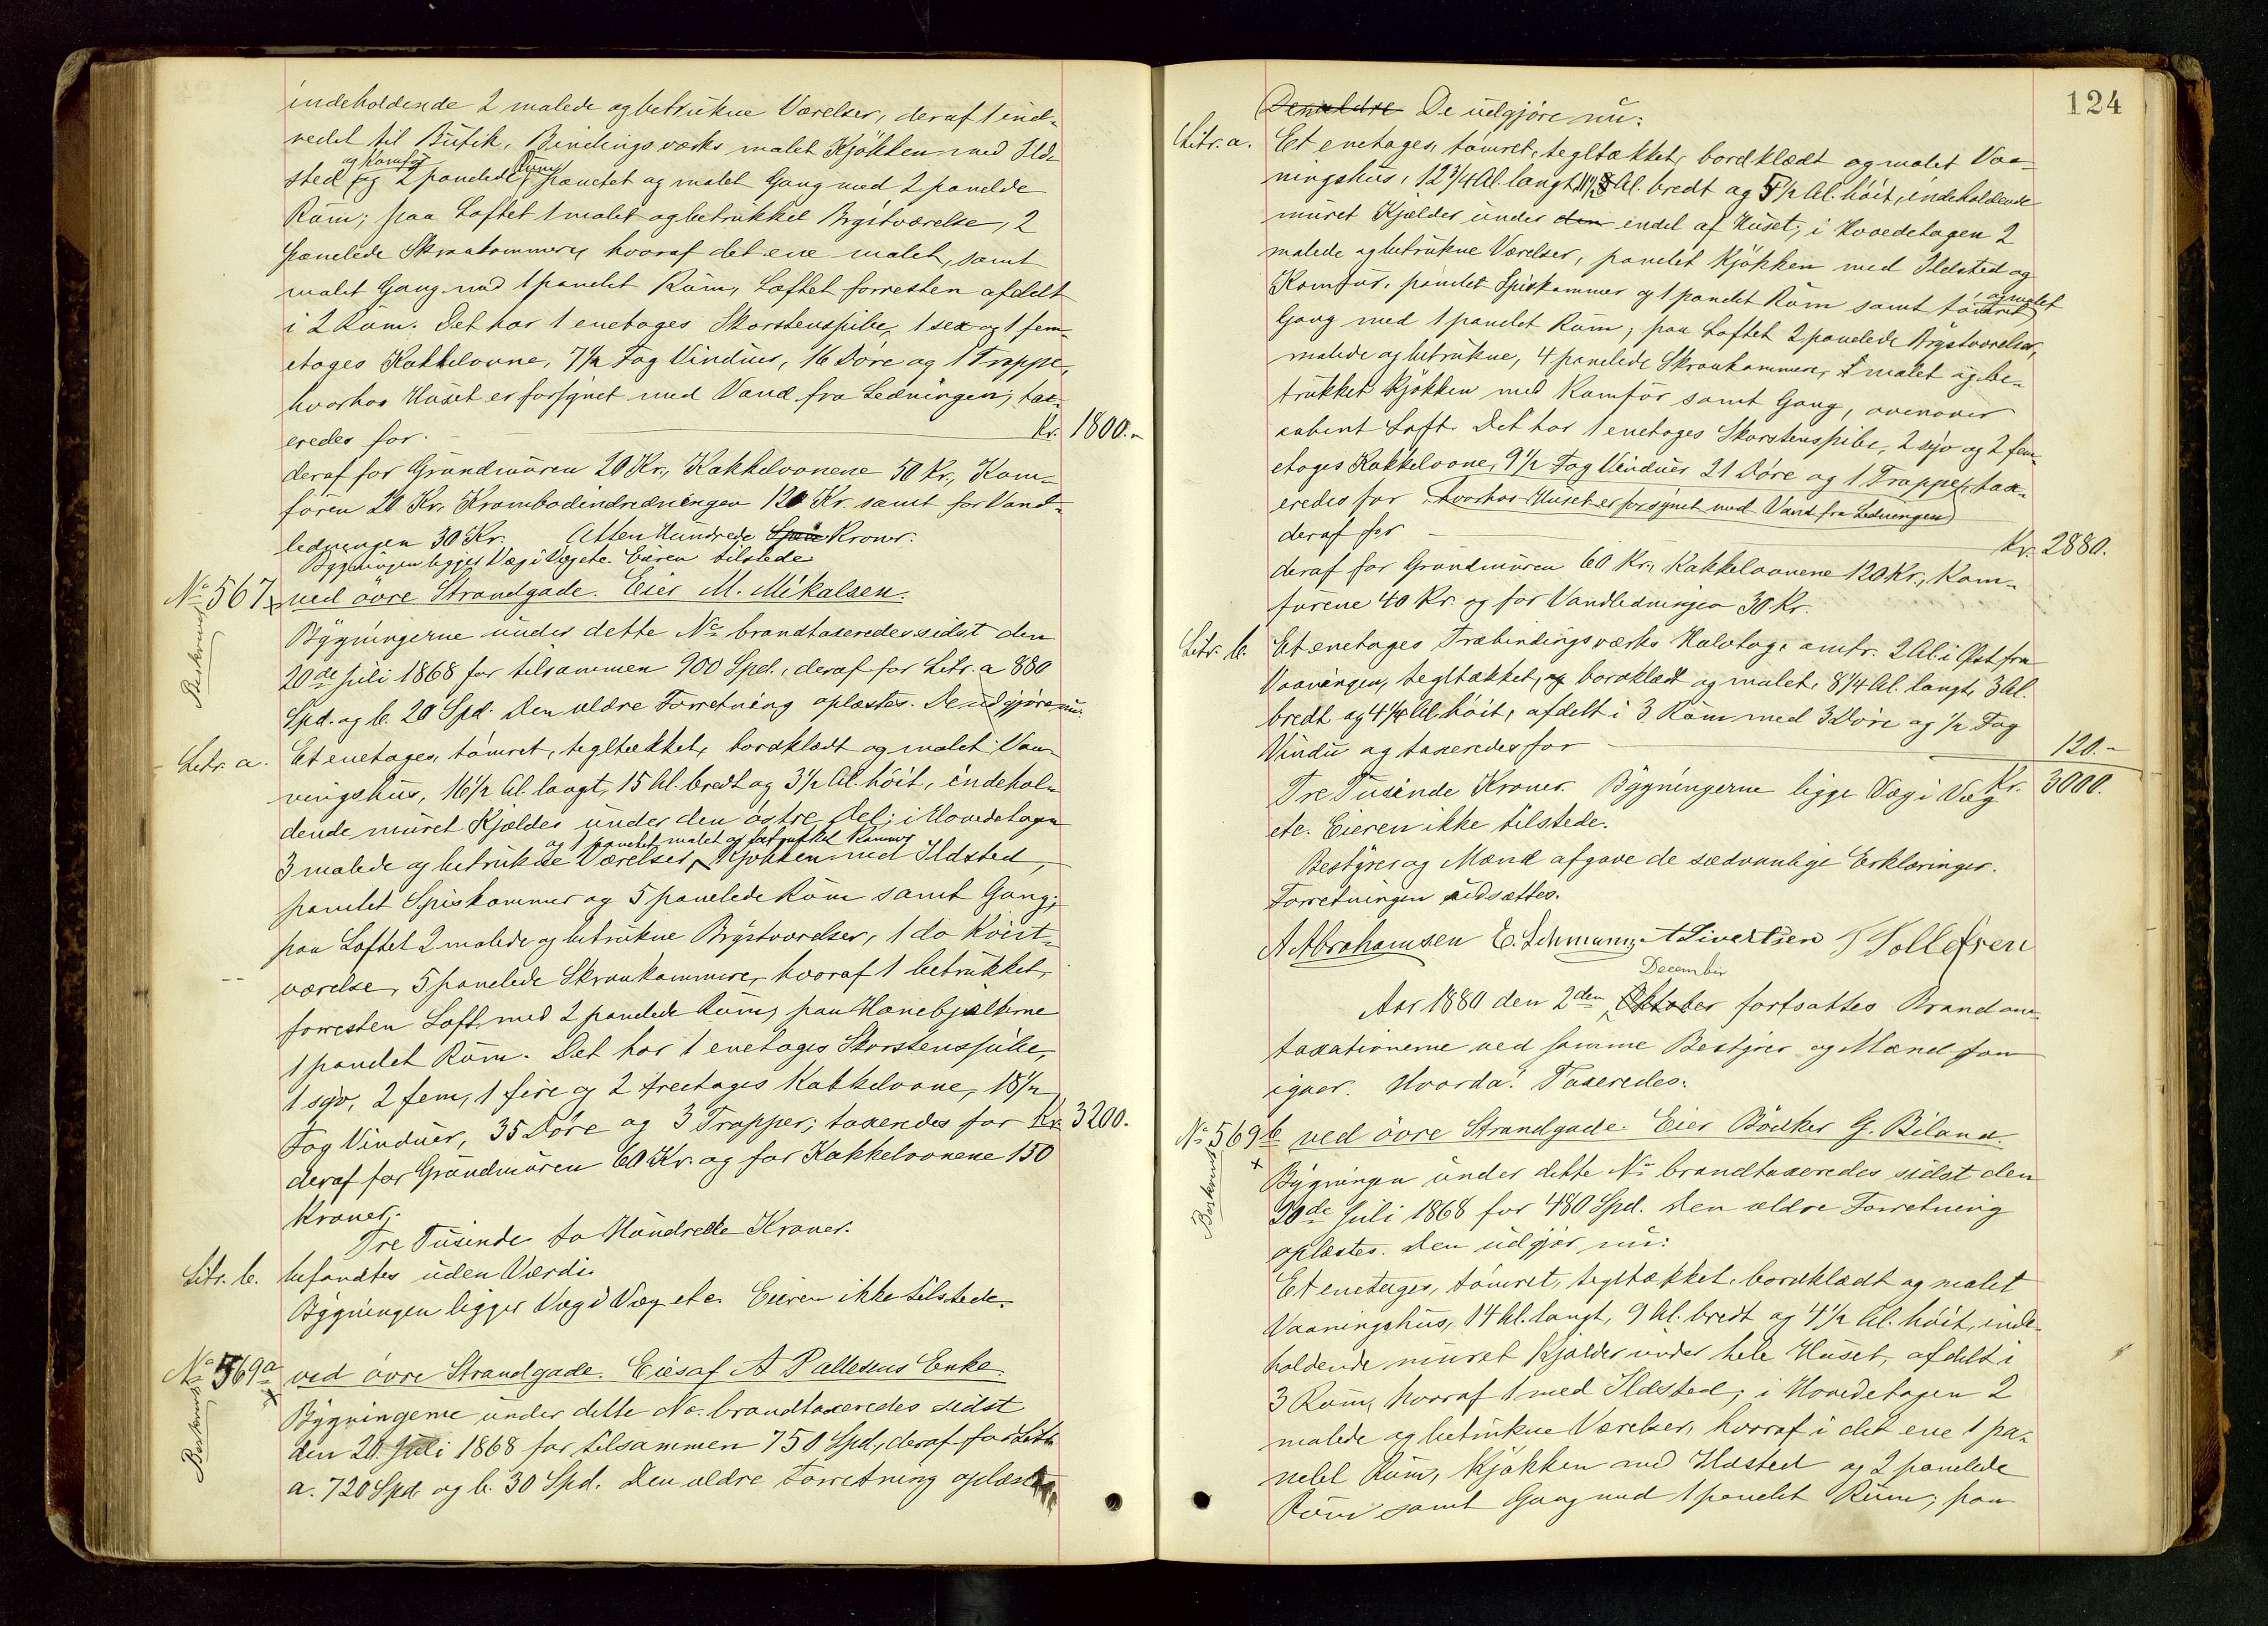 indeholdende 2 malede og betrukne Værelser, deraf 1 ind-
redet til Butik, Bindingsværks malet Kjøkken med Ild-
og Komfur
sted og 2 panelede Rum, panelet og malet Gang med 2 panelede
Rum; paa Loftet 1 malet og betrukket Brystværelse, 2
panelede Skraakammere, hvoraf det ene malet, samt
malet Gang med 1 panelet Rum, Loftet forresten afdelt
i 2 Rum. Det har 1 enetages Skorstenspibe, 1 sex og 1 fem-
etages Kakkelovne, 7½ Fag Vinduer, 16 Døre og 1 Trappe,
hvorhos Huset er forsynet med Vand fra Ledningen; tax-
eredes for Kr. 1800.-
deraf for Grundmuren 20 Kr., Kakkelovnene 50 Kr., Kom-
furen 20 Kr. Krambodindredningen 120 Kr. samt for Vand-
ledningen 30 Kr. Atten Hundrede Kroner.
Bygningen ligger Væg i Væg etc. Eieren tilstede
No 567 ved øvre Strandgade. Eier M. Mikalsen.
Beskrevet
Bygningerne under dette No brandtaxeredes sidst den
20de Juli 1868 for tilsammen 900 Spd., deraf for Litr. a 880
Spd. og b. 20 Spd. Den ældre Forretning oplæstes. De udgjøre nu:
Litr. a. Et enetages, tømret, tegltækket, bordklædt og malet Vaa-
ningshus, 16½ Al. langt, 15 Al. bredt og 3½ Al. høit, indehol-
dende muret Kjælder under den østre Del; i Hovedetagen
og 1 panelet malet og betrukket Kammer
3 malede og betrukne Værelser, Kjøkken med Ildsted,
panelet Spiskammer og 5 panelede Rum samt Gang;
paa Loftet 2 malede og betrukne Brystværelser, 1 do Kvist-
værelse, 5 panelede Skraakammere, hvoraf 1 betrukket,
forresten Loft med 2 panelede Rum, paa Hanebjælkerne
1 panelet Rum. Det har 1 enetages Skorstenspibe,
1 syv, 2 fem, 1 fire og 2 treetages Kakkelovne, 18½
Fag Vinduer, 35 Døre og 3 Trapper; taxeredes for Kr. 3200.
deraf for Grundmuren 60 Kr. og for Kakkelovnene 150
Kroner.
Tre Tusinde to Hundrede Kroner.
Litr. b. befandtes uden Værdi.
Bygningen ligger Væg i Væg etc. Eieren ikke tilstede.
No 569a ved øvre Strandgade. Eies af A Pallesens Enke.
Beskrevet
Bygningerne under dette No. brandtaxeredes sidst
den 20. Juli 1868 for tilsammen 750 Spd., deraf for Litr.
a. 720 Spd og b. 30 Spd. Den ældre Forretning oplæstes
124
Den ældre De udgjøre nu:
Litr. a. Et enetages, tømret, tegltækket, bordklædt og malet Vaa-
ningshus, 12¾ Al. langt, Al. bredt og 5½ Al. høit, indeholdende
muret Kjælder under den endel af Huset; i Hovedetagen 2
malede og betrukne Værelser, panelet Kjøkken med Ildsted og
Komfur, panelet Spiskammer og 1 panelet Rum samt tømret
og malet
Gang med 1 panelet Rum, paa Loftet 2 panelede Brystværelser,
malede og betrukne, 4 panelede Skraakammere, 1 malet og be-
trukket Kjøkken med Komfur samt Gang, ovenover
aabent Loft. Det har 1 enetages Skorstenspibe, 2 syv og 2 fem-
etages Kakkelovne, 9½ Fag Vinduer 21 Døre og 1 Trappe, tax-
eredes for (hvorhos Huset er forsynet med Vand fra Ledningen)
deraf for Kr. 2880.
deraf for Grundmuren 60 Kr., Kakkelovnene 120 Kr., Kom-
furene 40 Kr. og for Vandledningen 30 Kr.
Litr. b. Et enetages Træbindingsværks Halvtag, omtr. 2 Al. i Øst fra
Vaaningen, tegltækket, og bordklædt og malet, 8¼ Al. langt, 3 Al.
bredt og 4¼ Al. høit, afdelt i 3 Rum med 3 Døre og ½ Fag
Vindu og taxeredes for 120.-
Tre Tusinde Kroner. Bygningerne ligge Væg i Væg Kr. 3000.
etc. Eieren ikke tilstede.
Bestyrer og Mænd afgave de sædvanlige Erklæringer.
Forretningen udsættes.
A Abrahamsen E. Schmum A Sivertsen T Tollefsen
December
Aar 1880 den 2den Oktober fortsattes Brandom-
taxationerne ved samme Bestyrer og Mænd som
igaar. Hvorda: Taxeredes:
No 569b ved øvre Strandgade. Eier Bødker G. Biland.
Beskrevet
Bygningen under dette No brandtaxeredes sidst den
20de Juli 1868 for 480 Spd. Den ældre Forretning
oplæstes. Den udgjør nu:
Et enetages, tømret, tegltækket, bordklædt og malet
Vaaningshus, 14 Al. langt, 9 Al. bredt og 4½ Al. høit, inde-
holdende muret Kjælder under hele Huset, afdelt i
3 Rum, hvoraf 1 med Ildsted; i Hovedetagen 2
malede og betrukne Værelser, hvoraf i det ene 1 pa-
nelet Rum, Kjøkken med Ildsted og 2 panelede
Rum samt Gang med 1 panelet Rum; paa